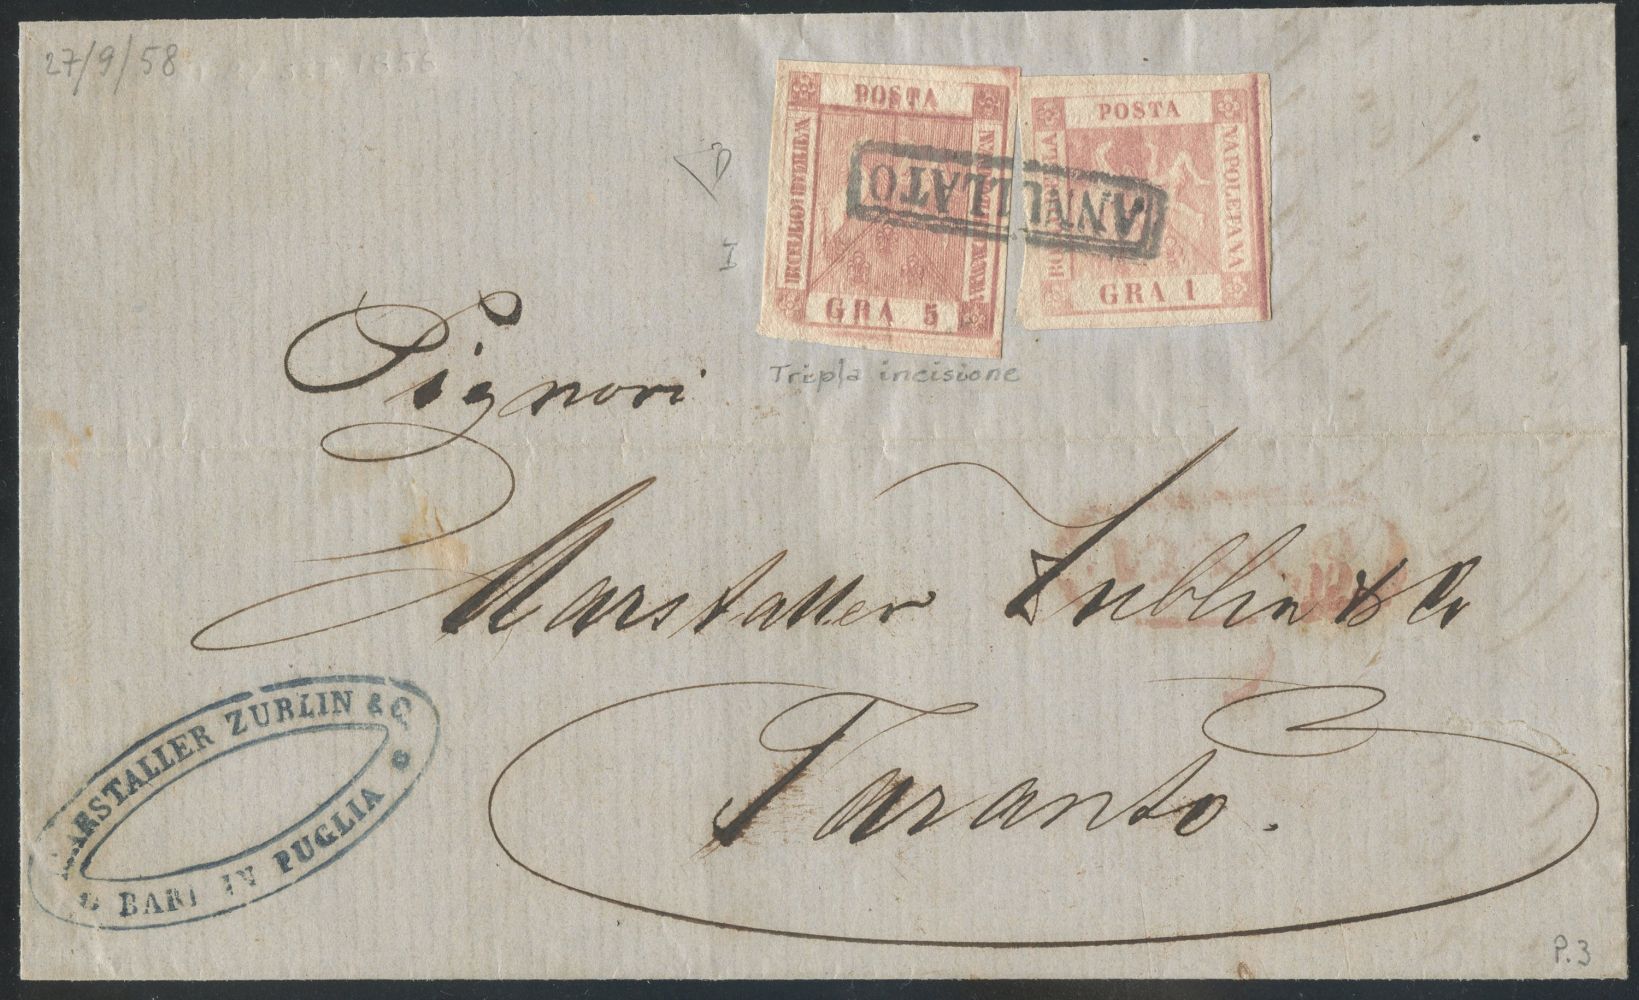 27/9/58
POSTA
BORBONICA
GRA 5
POSTA
NAPOLETANA
GRA 1
ANNULLATO
I
Tripla incisione
Signori
Marstaller Zublin & Co
Taranto.
MARSTALLER ZUBLIN & Co
BARI IN PUGLIA
P.3